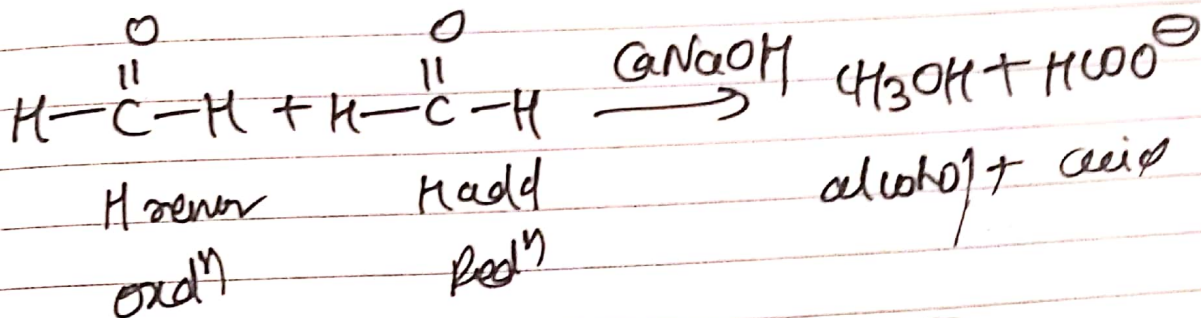 O O
|| ||
H—C—H + H—C—H CaNaOH → CH3OH + HCOO⊖
H remov H add alcohol + acid
oxdⁿ Redⁿ